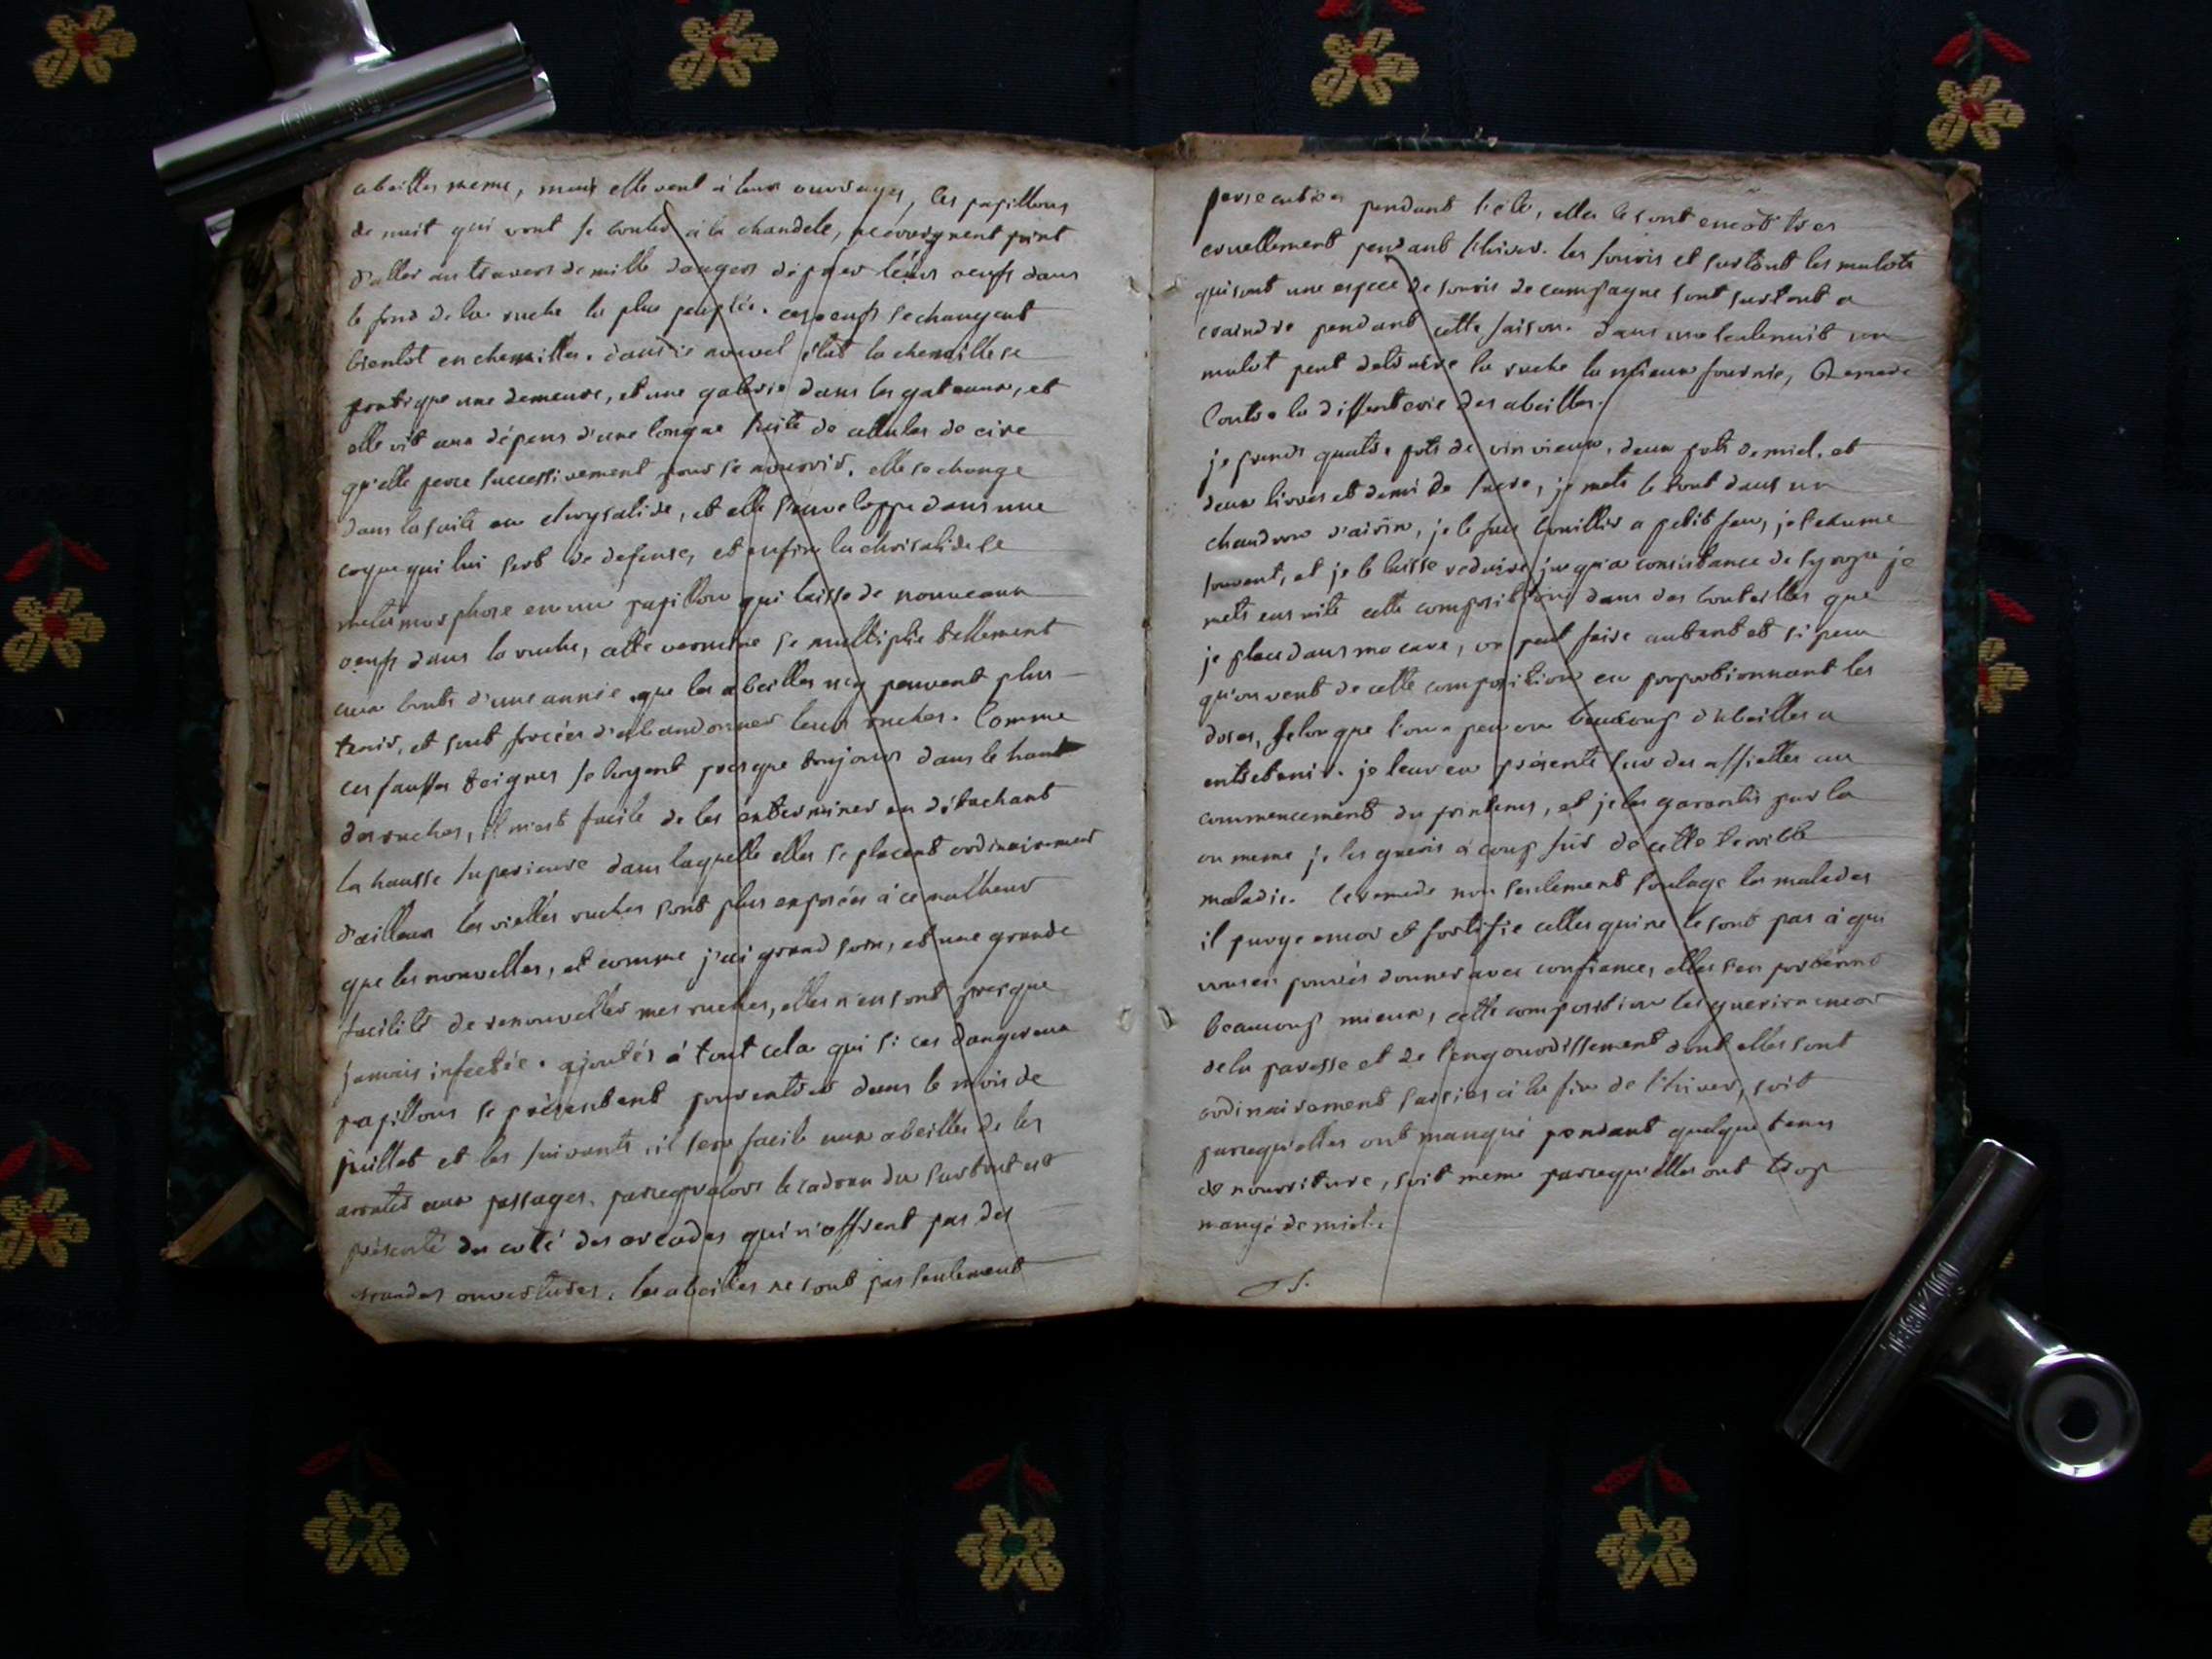 abeilles meme, mais elle veut à leur ouvrages, les papillons
de nuit qui vont se bruler à la chandele, ne craignent point
d'aller au travers de mille dangers déposer leurs oeufs dans
le fond de la ruche la plus peuplée. ces oeufs se changent
bientot en chenilles. dans ce nouvel état la chenille se
pratique une demeure, et une galerie dans les gateaux, et
elle vit aux dépens d'une longue suite de cellules de cire
qu'elle perce successivement pour se nourrir. elle se change
dans la suite en chrysalide, et elle s'enveloppe dans une
coque qui lui sert de defense, et enfin la chrisalide se
metamorphose en un papillon qui laisse de nouveaux
oeufs dans la ruche, cette vermine se multiplie tellement
aux bouts d'une année que les abeilles n'y peuvent plus
tenir, et sont forcées d'abandonner leurs ruches. Comme
ces fausses teignes se logent presque toujours dans le haut
des ruches, il m'est facile de les exterminer en détachant
la hausse superieure dans laquelle elles se placent ordinairement
d'ailleur les vielles ruches sont plus exposées à ce malheur
que les nouvelles, et comme j'ai grand soin, et une grande
facilité de renouveller mes ruches, elles n'en sont presque
jamais infectée. ajoutés à tout cela qui si ces dangereux
papillons se présentent pour entrer dans le mois de
juillet et les suivants, il sera facile aux abeilles de les
arreter aux passages, parcequ'alors le cadran du surtout est
présenté du coté des arcades qui n'offrent pas des
grandes ouvertures. les abeilles ne sont pas seulement
persecutées pendant l'été, elles le sont encor tres
cruellement pendant l'hiver. les souris et surtout les mulots
qui sont une espece de souris de campagne sont surtout a
craindre pendant cette saison. dans une seule nuit un
mulot peut detruire la ruche la mieux fournie, Remede
Contre la dissenterie des abeilles.
je prends quatre pots de vin vieux, deux pots de miel, et
deux livres et demi de sucre, je mets le tout dans un
chaudron d'airin, je le fais bouillir a petit feu, je l'ecume
souvent, et je le laisse reduire jusqu'a consistance de syrope je
mets ensuite cette composition dans des bouteilles que
je place dans ma cave, on peut faire autant et si peu
qu'on veut de cette composition en proportionnant les
doses, selon que l'on a peu ou beaucoup d'abeilles a
entretenir. je leur en présente sur des assiettes au
commencement du printems, et je les garantis par la
ou meme je les gueris à coup sûr de cette terrible
maladie. le remede non seulement soulage les malades
il purge encor et fortifie celles qui ne le sont pas à qui
vous en pouvés donner avec confiance, elles s'en porteront
beaucoup mieux, cette composition les guerira encor
de la paresse et de l'engourdissement dont elles sont
ordinairement saisies à la fin de l'hiver, soit
parcequ'elles ont manqué pendant quelque tems
de nourriture, soit meme parcequ'elles ont trop
mangé de miel.